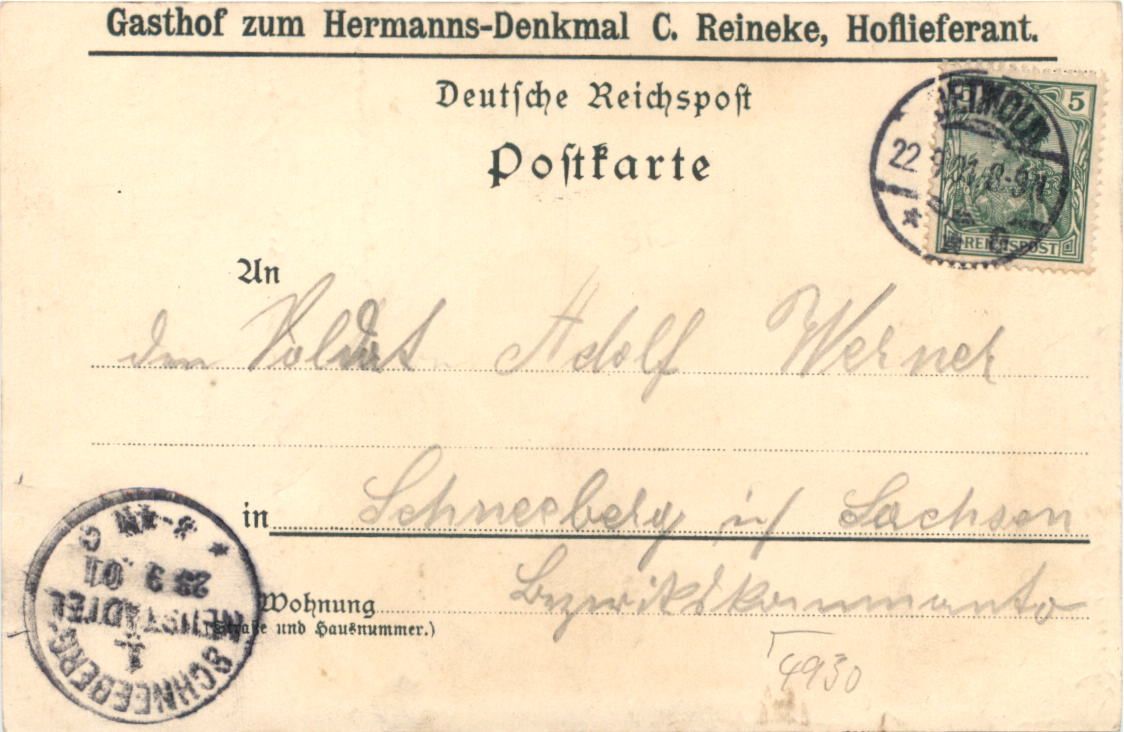 Gasthof zum Hermanns-Denkmal C. Reineke, Hoflieferant.
Deutsche Reichspost
Postkarte
5
DETMOLD
22
01 8-9 N
* *
REICHSPOST
An
den Soldat Adolf Werner
in Schneeberg i/ Sachsen
Wohnung Bezirkskommando
(Straße und Hausnummer.)
4930
SCHNEEBERG-
NEUSTÄDTEL
1
23 9 01